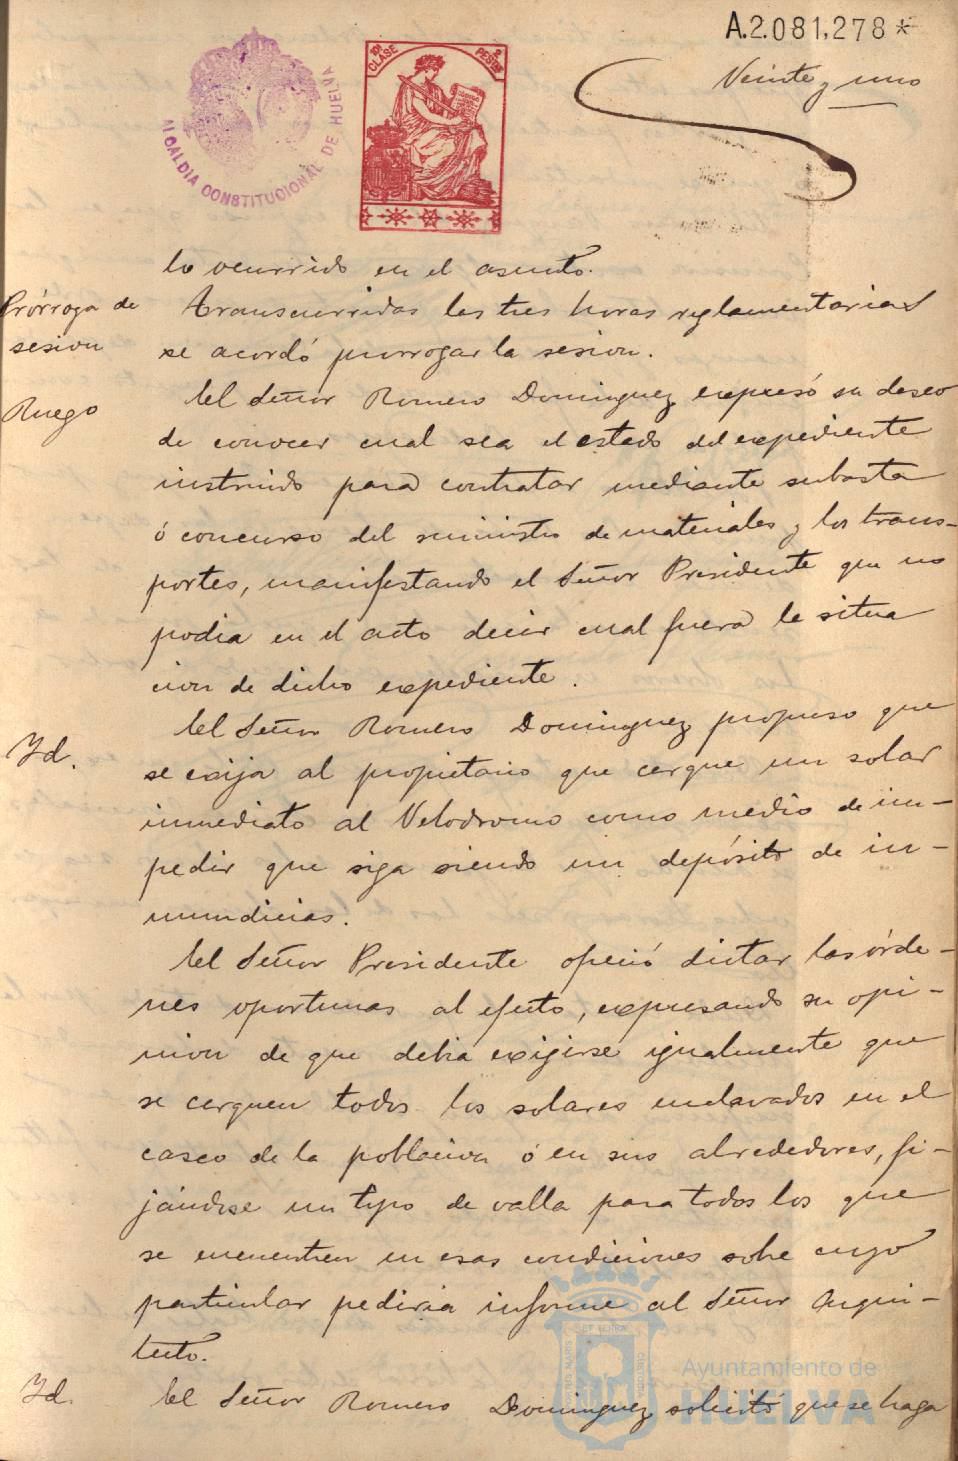 A.2.081,278*
Veinte y uno
10ª CLASE
2 PESETAS
ALCALDIA CONSTITUCIONAL DE HUELVA
lo ocurrido en el asunto.
Prórroga de sesion
Transcurridas las tres horas reglamentarias
se acordó prorrogar la sesion.
Ruego
El Señor Romero Dominguez expresó su deseo
de conocer cual sea el estado del expediente
instruido para contratar mediante subasta
ó concurso del suministro de materiales y los trans-
portes, manifestando el Señor Presidente que no
podia en el acto decir cual fuera la situa
cion de dicho expediente.
Id.
El Señor Romero Dominguez propuso que
se exija al propietario que cerque un solar
inmediato al Velodromo como medio de im-
pedir que siga siendo un depósito de in-
mundicias.
El Señor Presidente ofreció dictar las órde-
nes oportunas al efecto, expresando su opi-
nion de que debia exigirse igualmente que
se cerquen todos los solares enclavados en el
casco de la poblacion ó en sus alrededores, fi-
jándose un tipo de valla para todos los que
se encuentren en esas condiciones sobre cuyo
particular pediria informe al Señor Arqui-
tecto.
Id.
El Señor Romero Dominguez solicitó que se haga
Ayuntamiento de
HUELVA